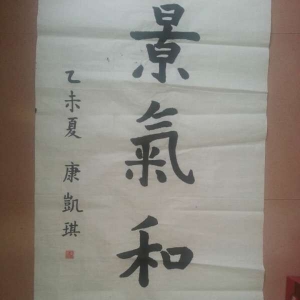 景氣和
乙未夏 康凱琪